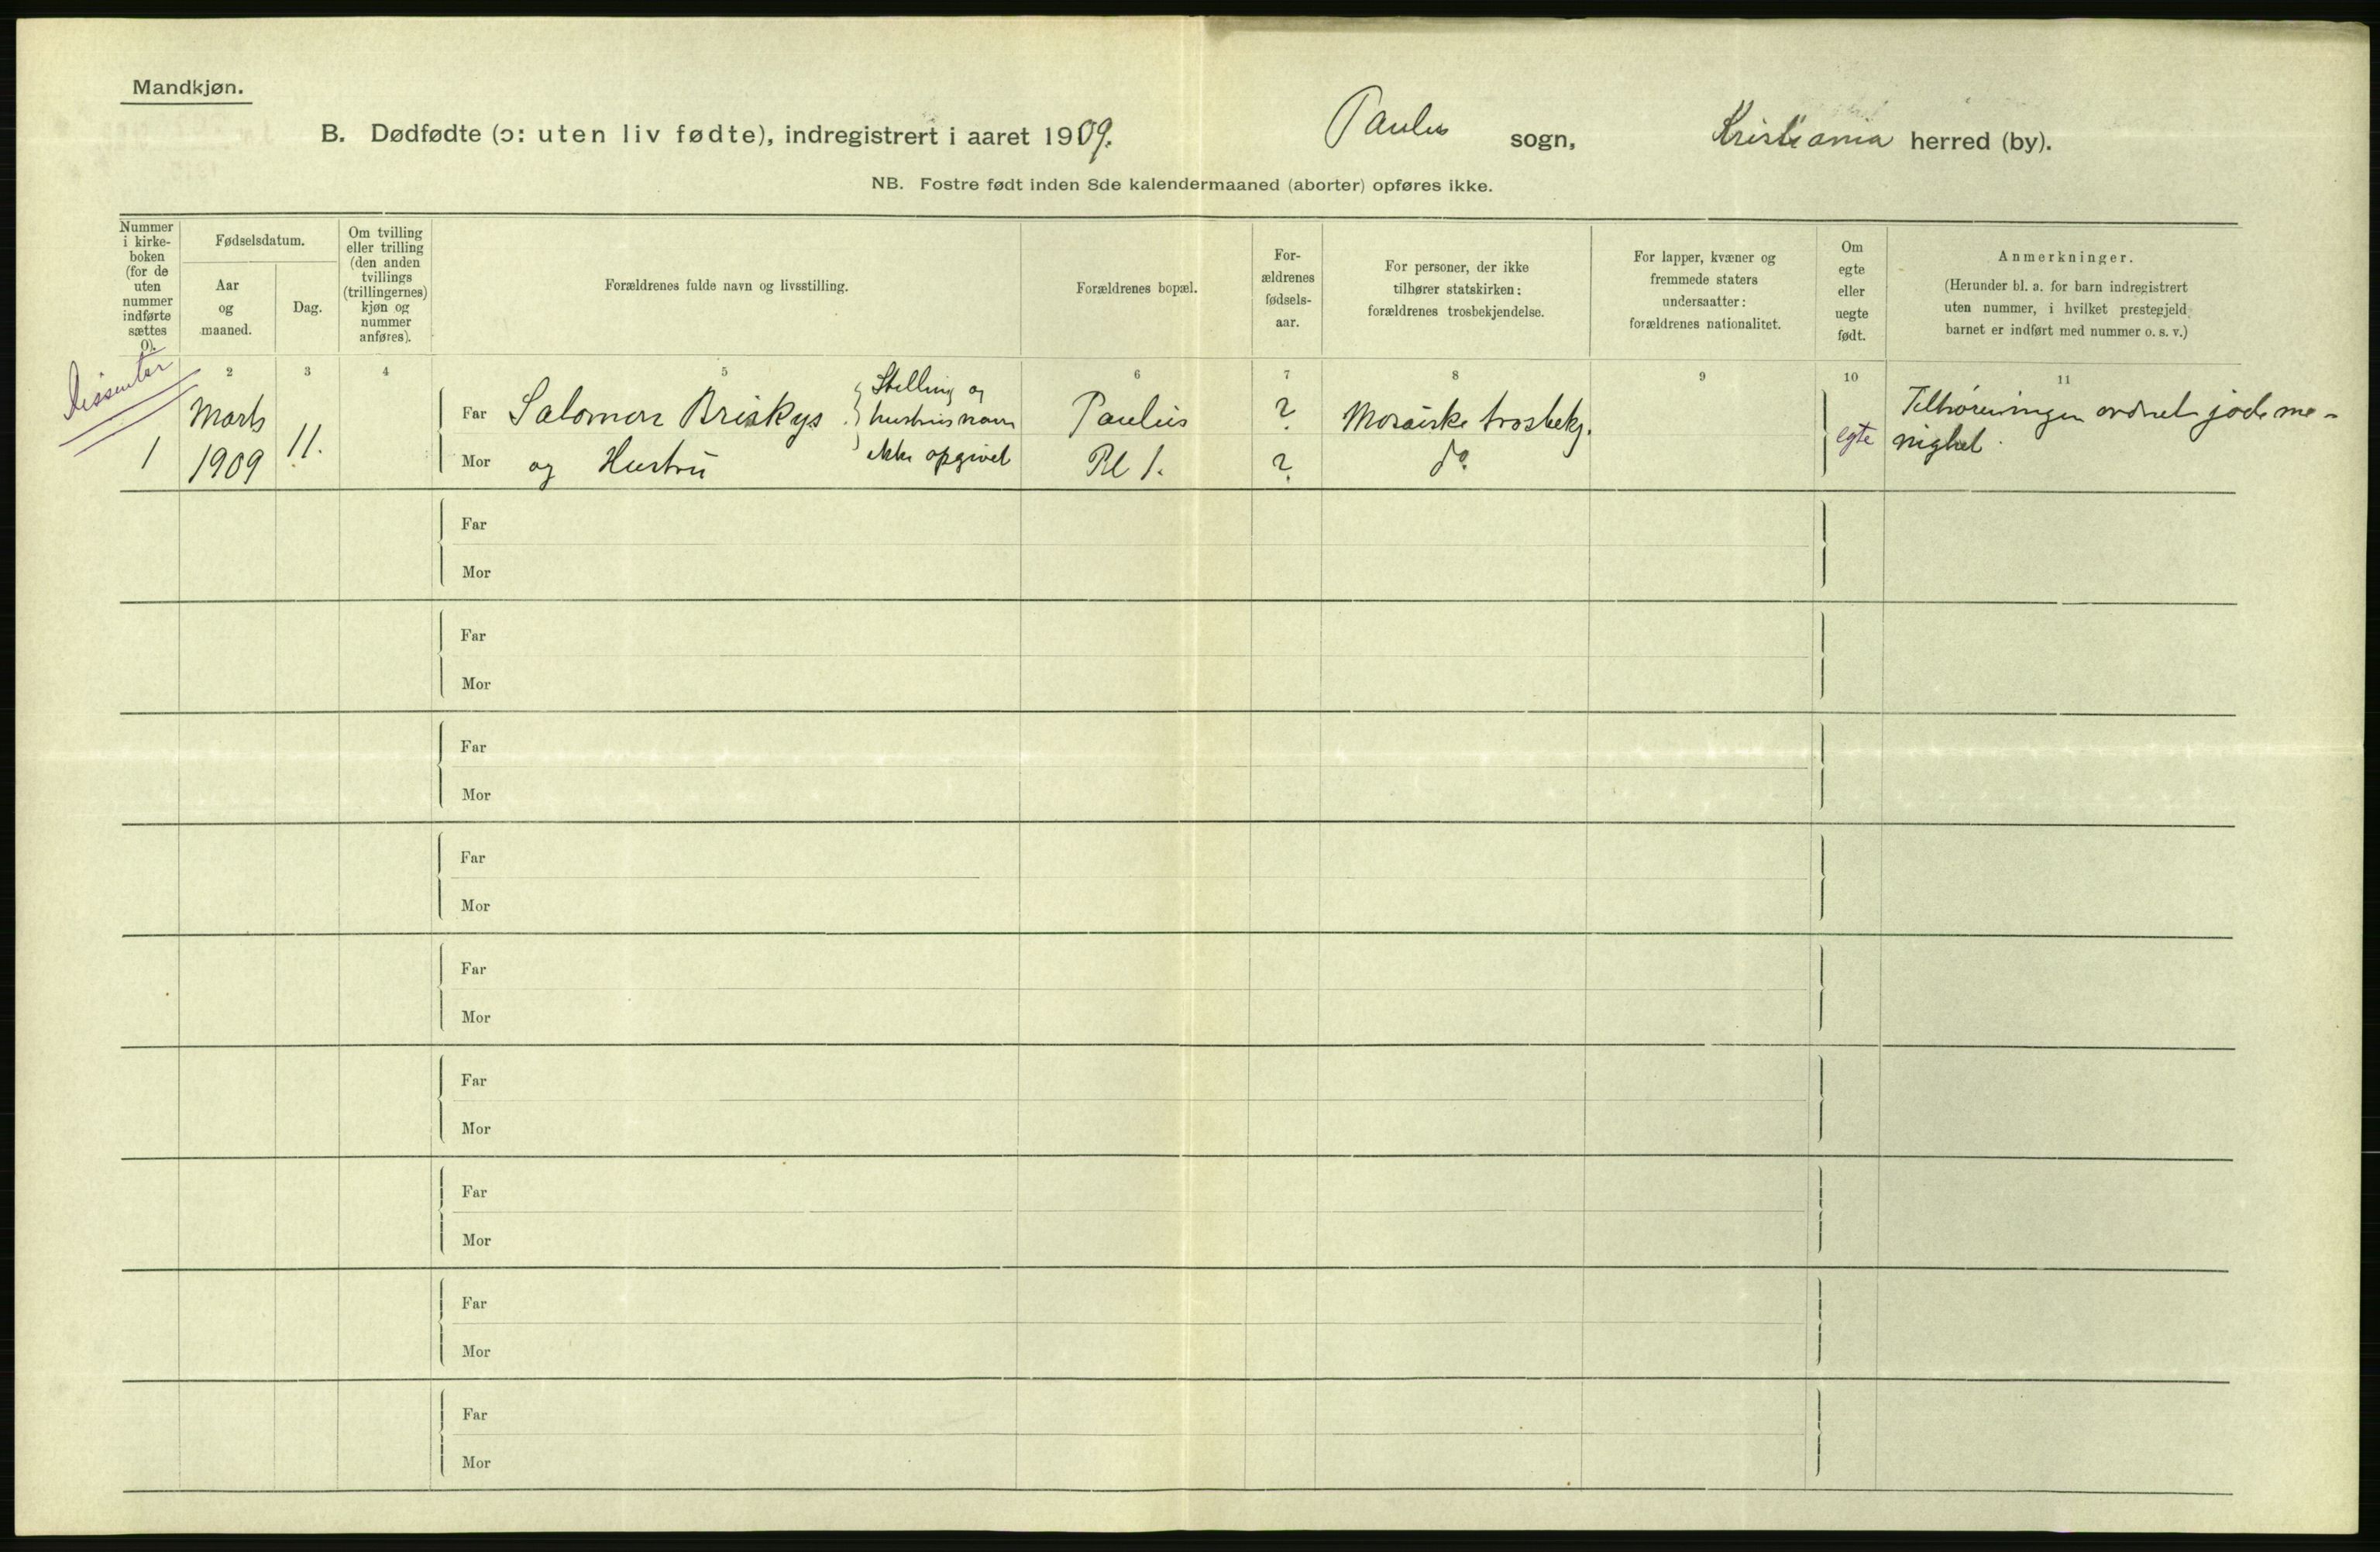 Mandkjøn.
B. Dødfødte (ɔ: uten liv fødte), indregistrert i aaret 1909. Paulus sogn, Kristiania herred (by).
NB. Fostre født inden 8de kalendermaaned (aborter) opføres ikke.
Nummer
i kirke-
boken
(for de
uten
nummer
indførte
sættes
0).
Fødselsdatum.
Aar
og
maaned.
Dag.
Om tvilling
eller trilling
(den anden
tvillings
(trillingernes)
kjøn og
nummer
anføres).
Forældrenes fulde navn og livsstilling.
Forældrenes bopæl.
For-
ældrenes
fødsels-
aar.
For personer, der ikke
tilhører statskirken:
forældrenes trosbekjendelse.
For lapper, kvæner og
fremmede staters
undersaatter:
forældrenes nationalitet.
Om
egte
eller
uegte
født.
Anmerkninger.
(Herunder bl. a. for barn indregistrert
uten nummer, i hvilket prestegjeld
barnet er indført med nummer o. s. v.)
2 3 4 5 6 7 8 9 10 11
Dissenter
1
Marts
1909
11.
Far Salomon Briskys
Mor og Hustru
Stilling og
hustrus navn
ikke opgivet
Paulus
Pl 1.
?
?
Mosaiske trosbekj.
do
egte
jøde me-
nighet.
Far
Mor
Far
Mor
Far
Mor
Far
Mor
Far
Mor
Far
Mor
Far
Mor
Far
Mor
Far
Mor